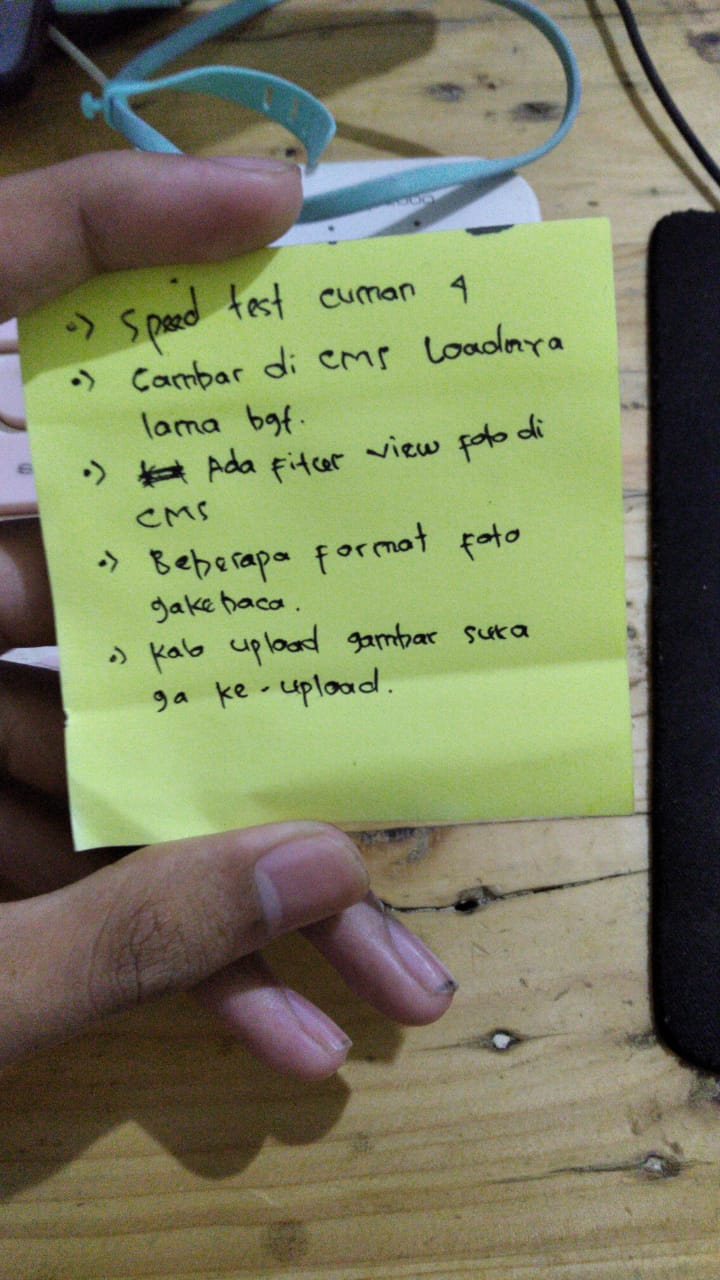 •) Speed test cuman 4
•) Gambar di CMS Loadnya
lama bgt.
•) Ada Fitur view foto di
CMS
•) Beberapa format foto
gakebaca.
•) Kalo upload gambar suka
ga ke-upload.